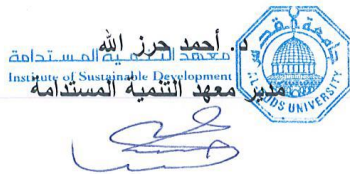 د. أحمد حرز الله
معهد التنمية المستدامة
Institute of Sustainable Development
مدير معهد التنمية المستدامة
جامعة القدس
AL-QUDS UNIVERSITY